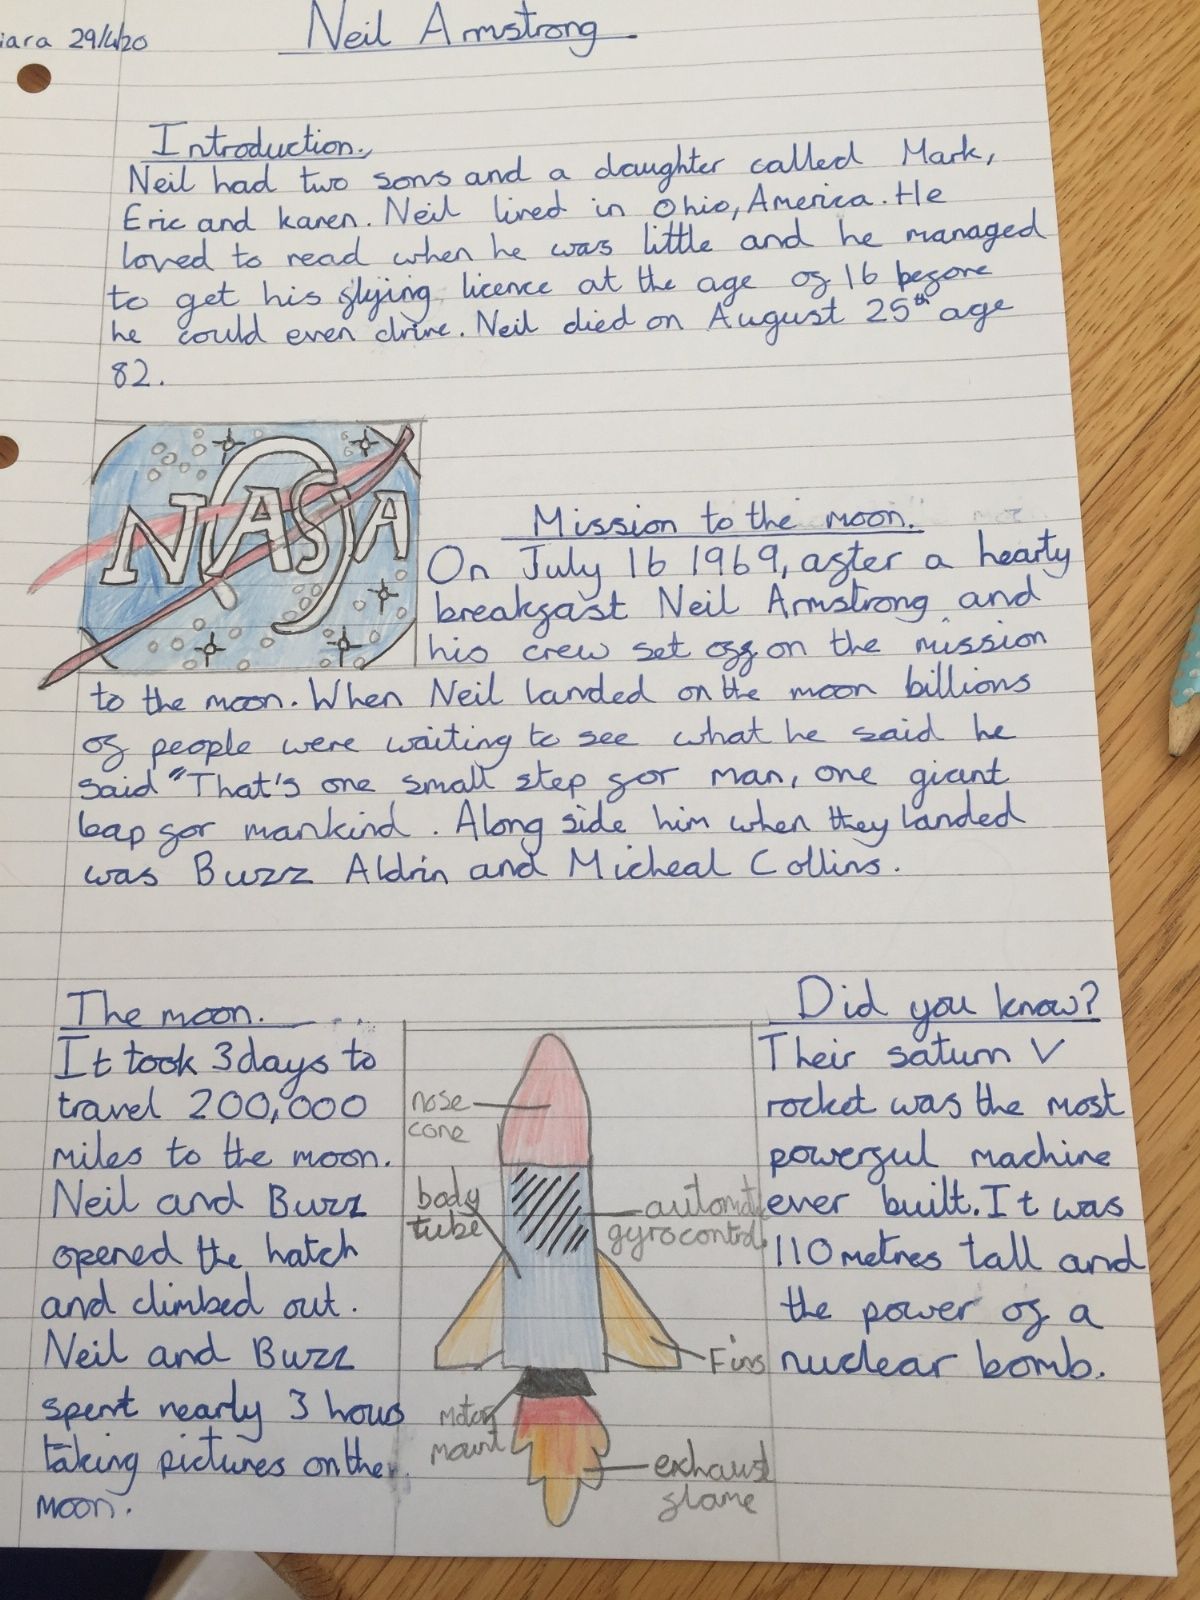 iara 29/4/20
Neil Armstrong.
Introduction.
Neil had two sons and a daughter called Mark,
Eric and karen. Neil lived in Ohio, America. He
loved to read when he was little and he managed
to get his flying licence at the age of 16 before
he could even drive. Neil died on August 25th age
82.
NASA
Mission to the moon.
On July 16 1969, after a hearty
breakfast Neil Armstrong and
his crew set off on the mission
to the moon. When Neil landed on the moon billions
of people were waiting to see what he said he
said "That's one small step for man, one giant
leap for mankind. Along side him when they landed
was Buzz Aldrin and Micheal Collins.
The moon.
It took 3 days to
travel 200,000
miles to the moon.
Neil and Buzz
opened the hatch
and climbed out.
Neil and Buzz
spent nearly 3 hours
taking pictures on the
moon.
nose
cone
body
tube
automatic
gyro control
Fins
Motor
mount
exhaust
flame
Did you know?
Their saturn V
rocket was the most
powerful machine
ever built. It was
110 metres tall and
the power of a
nuclear bomb.